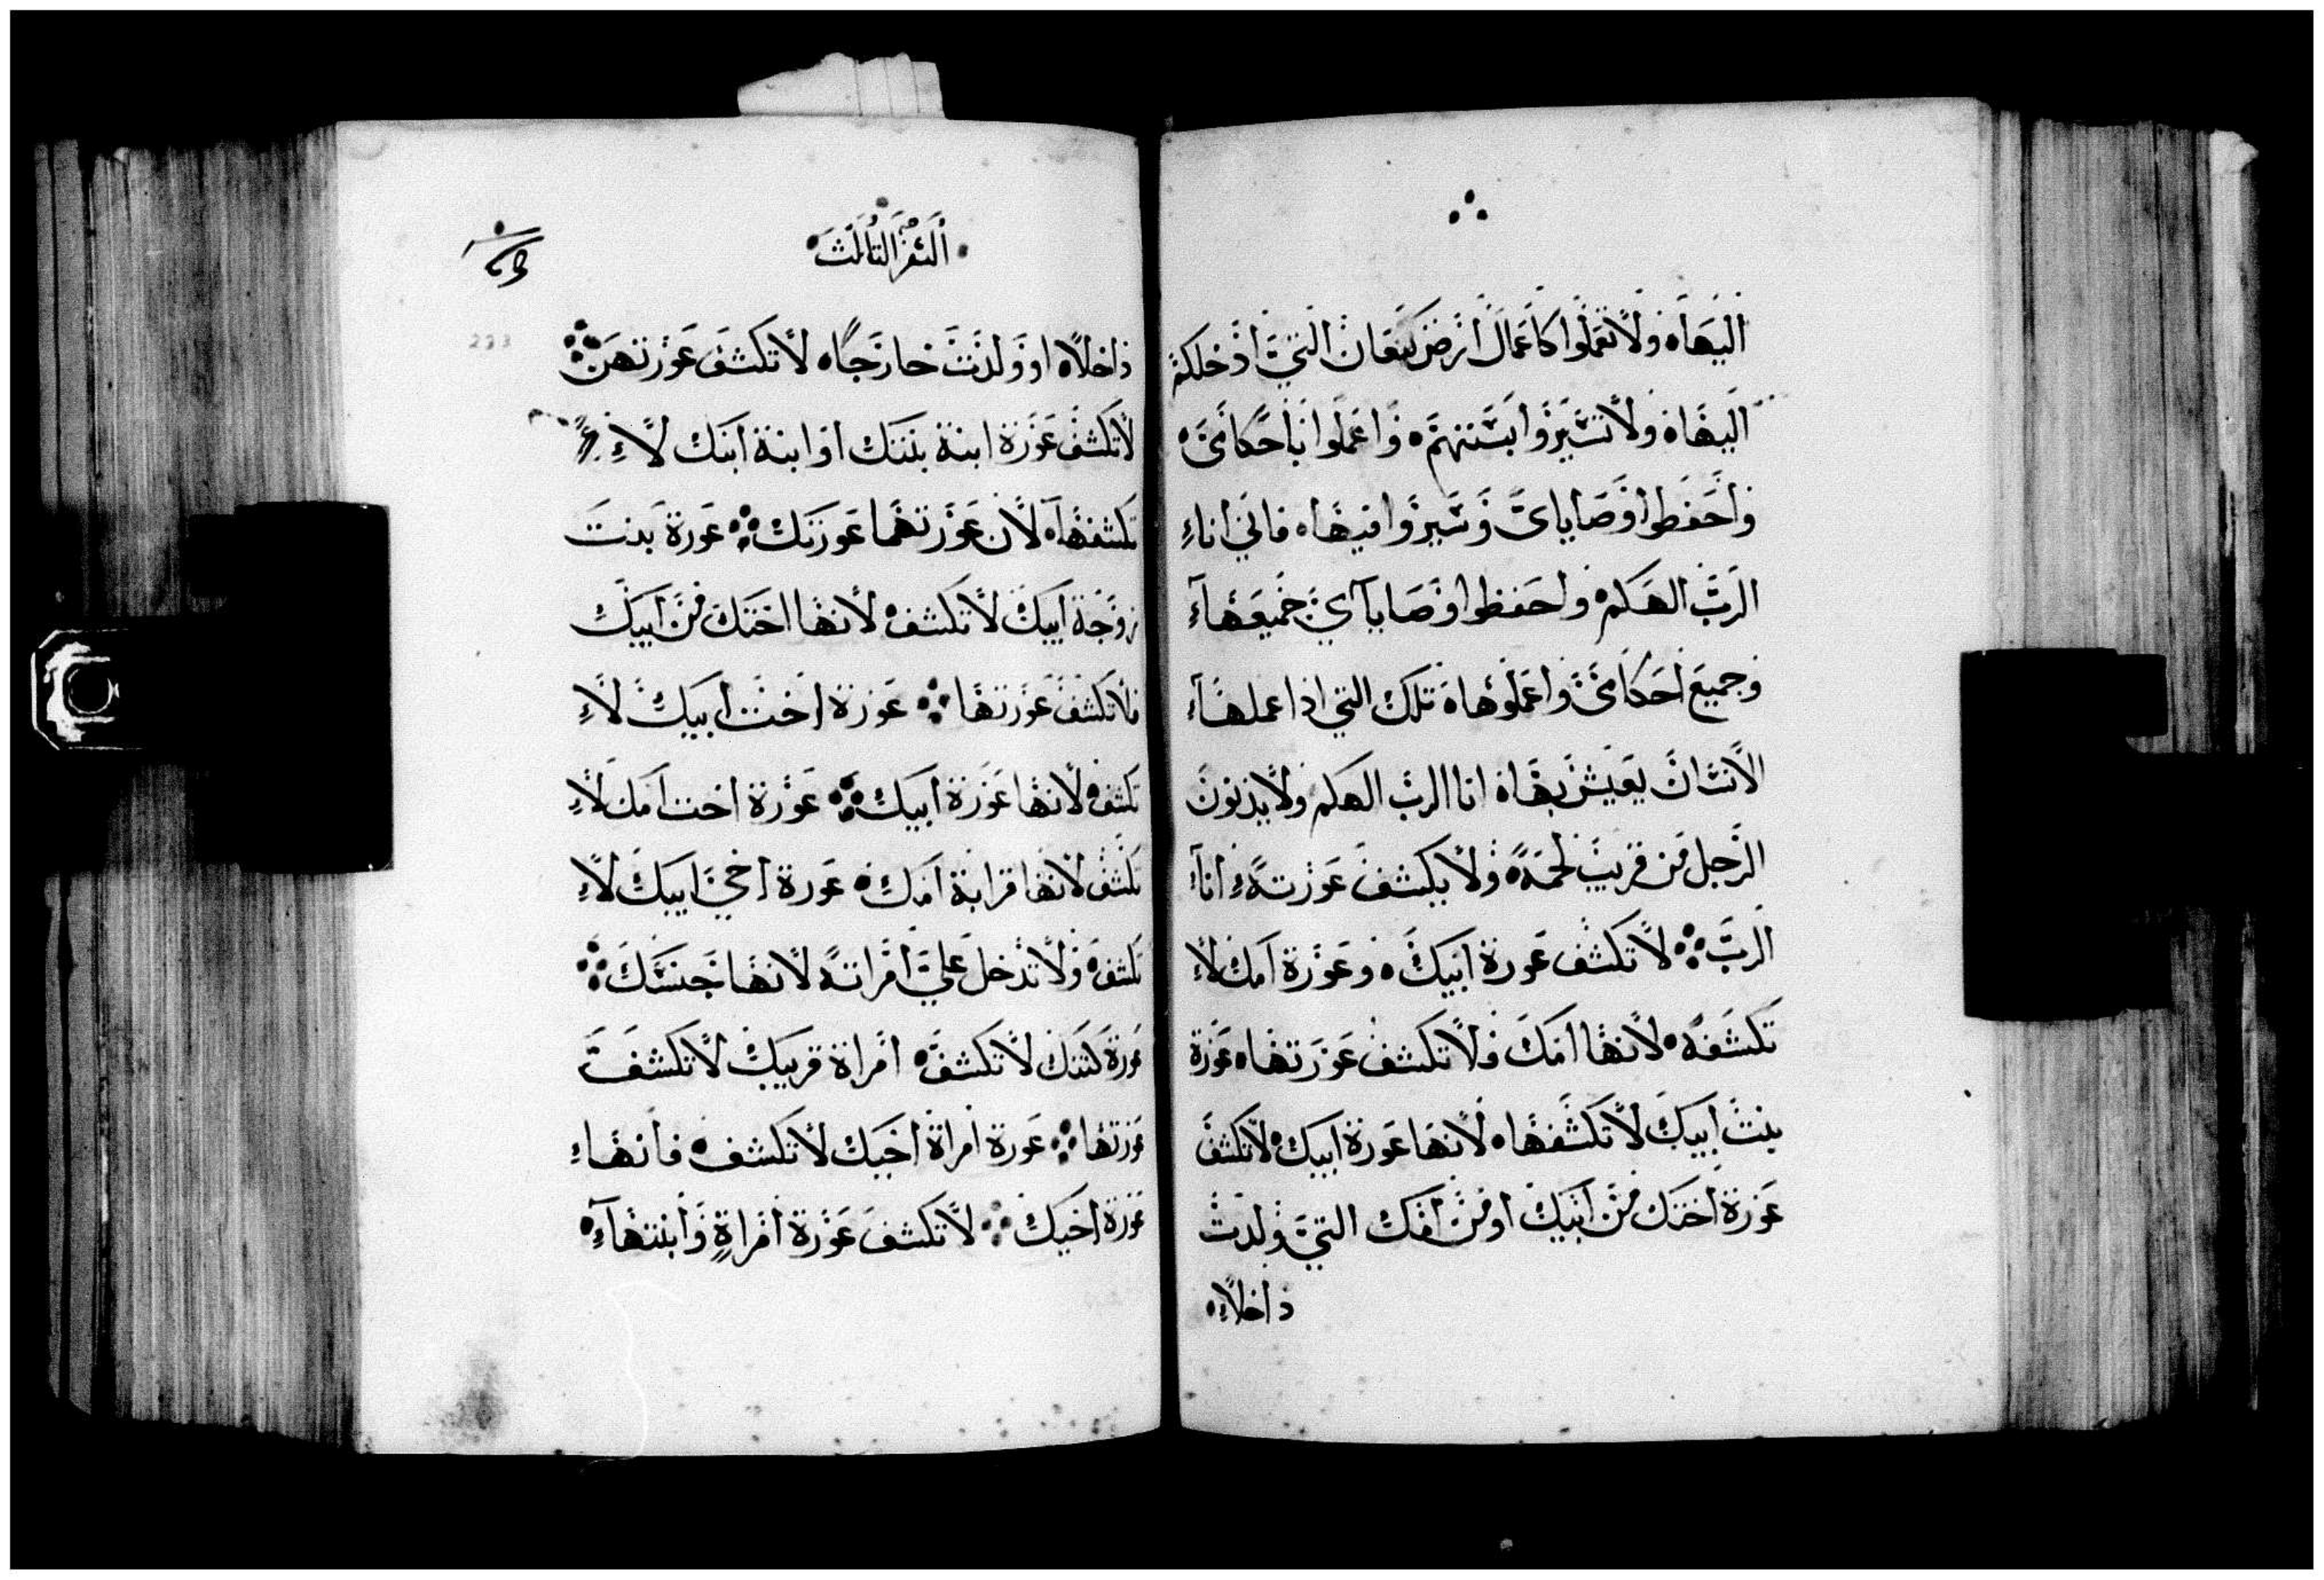 اليها ولا تعملوا كاعمال ارض كنعان التي ادخلكم
اليها ولا تسيروا بسنتهم واعملوا باحكامي
واحفظوا وصاياي وسيروا فيها فاني انا
الرب الهكم واحفظوا وصاياي جميعها
وجميع احكامي واعملوها تلك التي اذا عملها
الانسان يعيش بها انا الرب الهكم ولا يدنون
الرجل من قريب لحمه ولا يكشف عورته انا
الرب لا تكشف عورة ابيك وعورة امك لا
تكشفه لانها امك فلا تكشف عورتها عورة
بنت ابيك لا تكشفها لانها عورة ابيك لا تكشف
عورة اختك من ابيك او من امك التي ولدت
داخلا
السفر الثالث
داخلا او ولدت خارجا لا تكشف عورتهن
لا تكشف عورة ابنة بنتك او ابنة ابنك لا
تكشفها لان عورتهما عورتك عورة بنت
زوجة ابيك لا تكشف لانها اختك من ابيك
فلا تكشف عورتها عورة اخت ابيك لا
تكشف لانها عورة ابيك عورة اخت امك لا
تكشف لانها قرابة امك عورة اخي ابيك لا
تكشف ولا تدخل علي امراته لانها جنسك
عورة كنتك لا تكشف امراة قريبك لا تكشف
عورتها عورة امراة اخيك لا تكشف فانها
عورة اخيك لا تكشف عورة امراة وابنتها